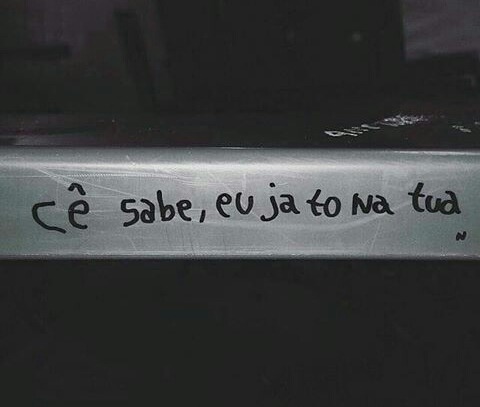 cê sabe, eu ja to na tua
N